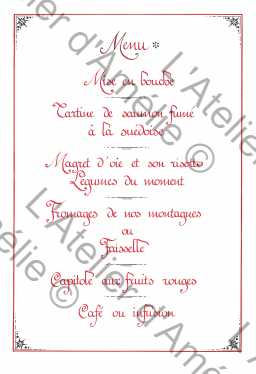 Menu *
Mise en bouche
Tartine de saumon fumé
à la suédoise
Magret d'oie et son risotto
Légumes du moment
Fromages de nos montagnes
ou
Faisselle
Capitole aux fruits rouges
Café ou infusion
L'Atelier d'Amélie ©
L'Atelier d'Amélie ©
L'Atelier d'Amélie ©